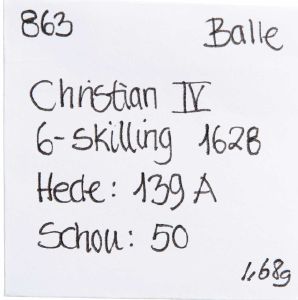 863 Balle
Christian IV
6-skilling 1628
Hede: 139 A
Schou: 50
1,68g